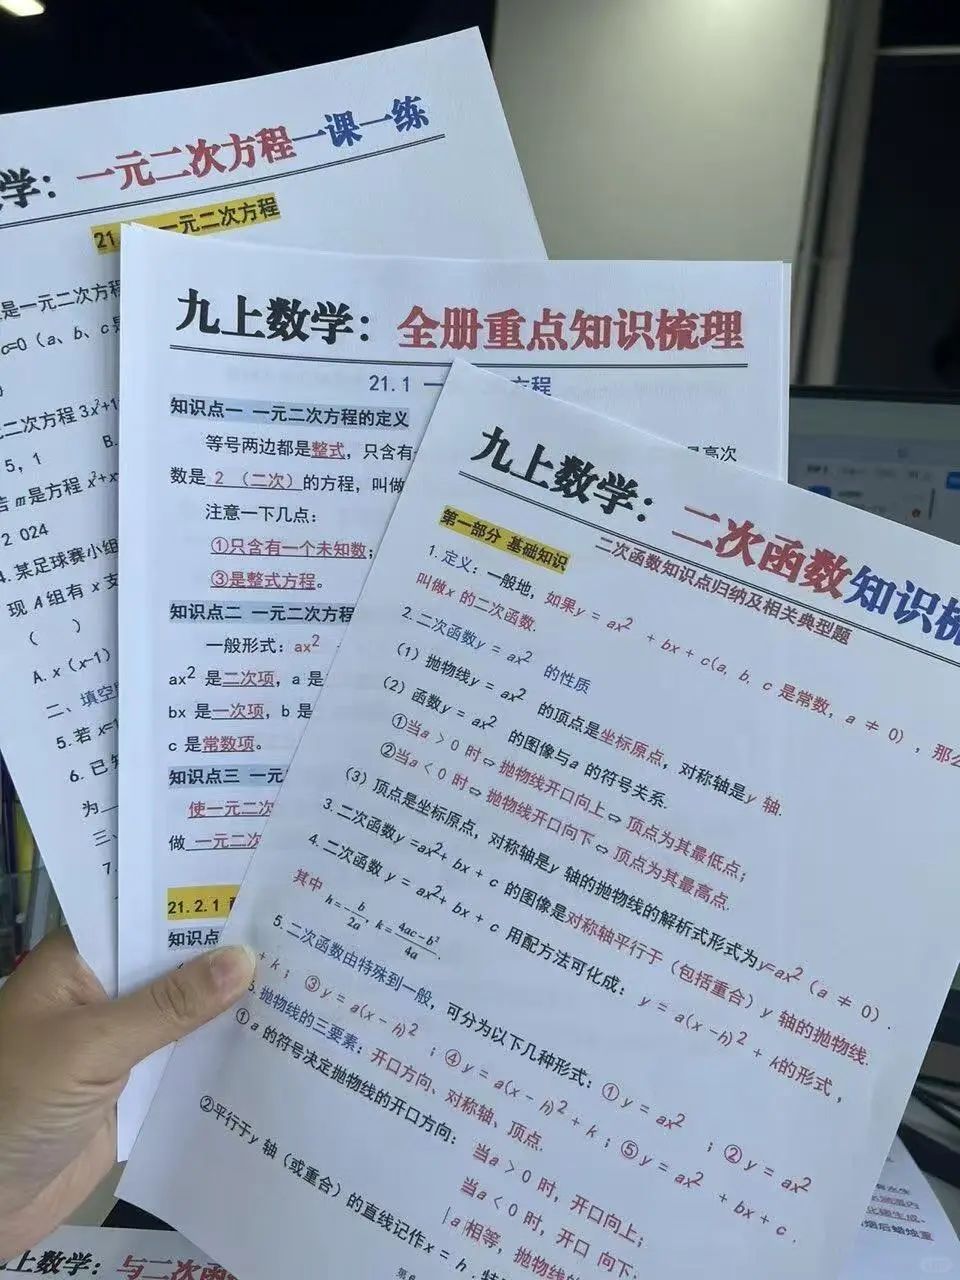 学：一元二次方程一课一练
21. 一元二次方程
是一元二次方程
c=0（a、b、c是
二次方程3x²+1
5，1 B.
若m是方程x²+x
2 024
4.某足球赛小组
现A组有x支
（ ）
A.x（x-1）
二、填空
5.若x=1
6.已知
为
三、
7.
九上数学：全册重点知识梳理
21.1 一 方程
知识点一 一元二次方程的定义
等号两边都是整式，只含有一 最高次
数是 2 （二次）的方程，叫做
注意一下几点：
①只含有一个未知数；
③是整式方程。
知识点二 一元二次方程
一般形式：ax²
ax² 是二次项，a 是
bx 是一次项，b 是
c 是常数项。
知识点三 一元
使一元二次
做 一元二次
21.2.1
知识点
九上数学：二次函数知识梳
二次函数知识点归纳及相关典型题
第一部分 基础知识
1.定义：一般地，如果y=ax²+bx+c(a,b,c是常数，a≠0)，那么
叫做x的二次函数.
2.二次函数y=ax² 的性质
（1）抛物线y=ax² 的顶点是坐标原点，对称轴是y轴.
（2）函数y=ax² 的图像与a的符号关系.
①当a>0时⇔抛物线开口向上⇔顶点为其最低点；
②当a<0时⇔抛物线开口向下⇔顶点为其最高点.
（3）顶点是坐标原点，对称轴是y轴的抛物线的解析式形式为y=ax²（a≠0）.
3.二次函数y=ax²+bx+c的图像是对称轴平行于（包括重合）y轴的抛物线.
4.二次函数y=ax²+bx+c用配方法可化成：y=a(x-h)²+k的形式，
其中h=-b/2a，k=(4ac-b²)/4a.
5.二次函数由特殊到一般，可分为以下几种形式：①y=ax²；②y=ax²
+k；③y=a(x-h)²；④y=a(x-h)²+k；⑤y=ax²+bx+c.
6.抛物线的三要素：开口方向、对称轴、顶点.
①a的符号决定抛物线的开口方向：当a>0时，开口向上；
当a<0时，开口 向下；
|a|相等，抛物线的
②平行于y轴（或重合）的直线记作x=h.特
九上数学：与二次函